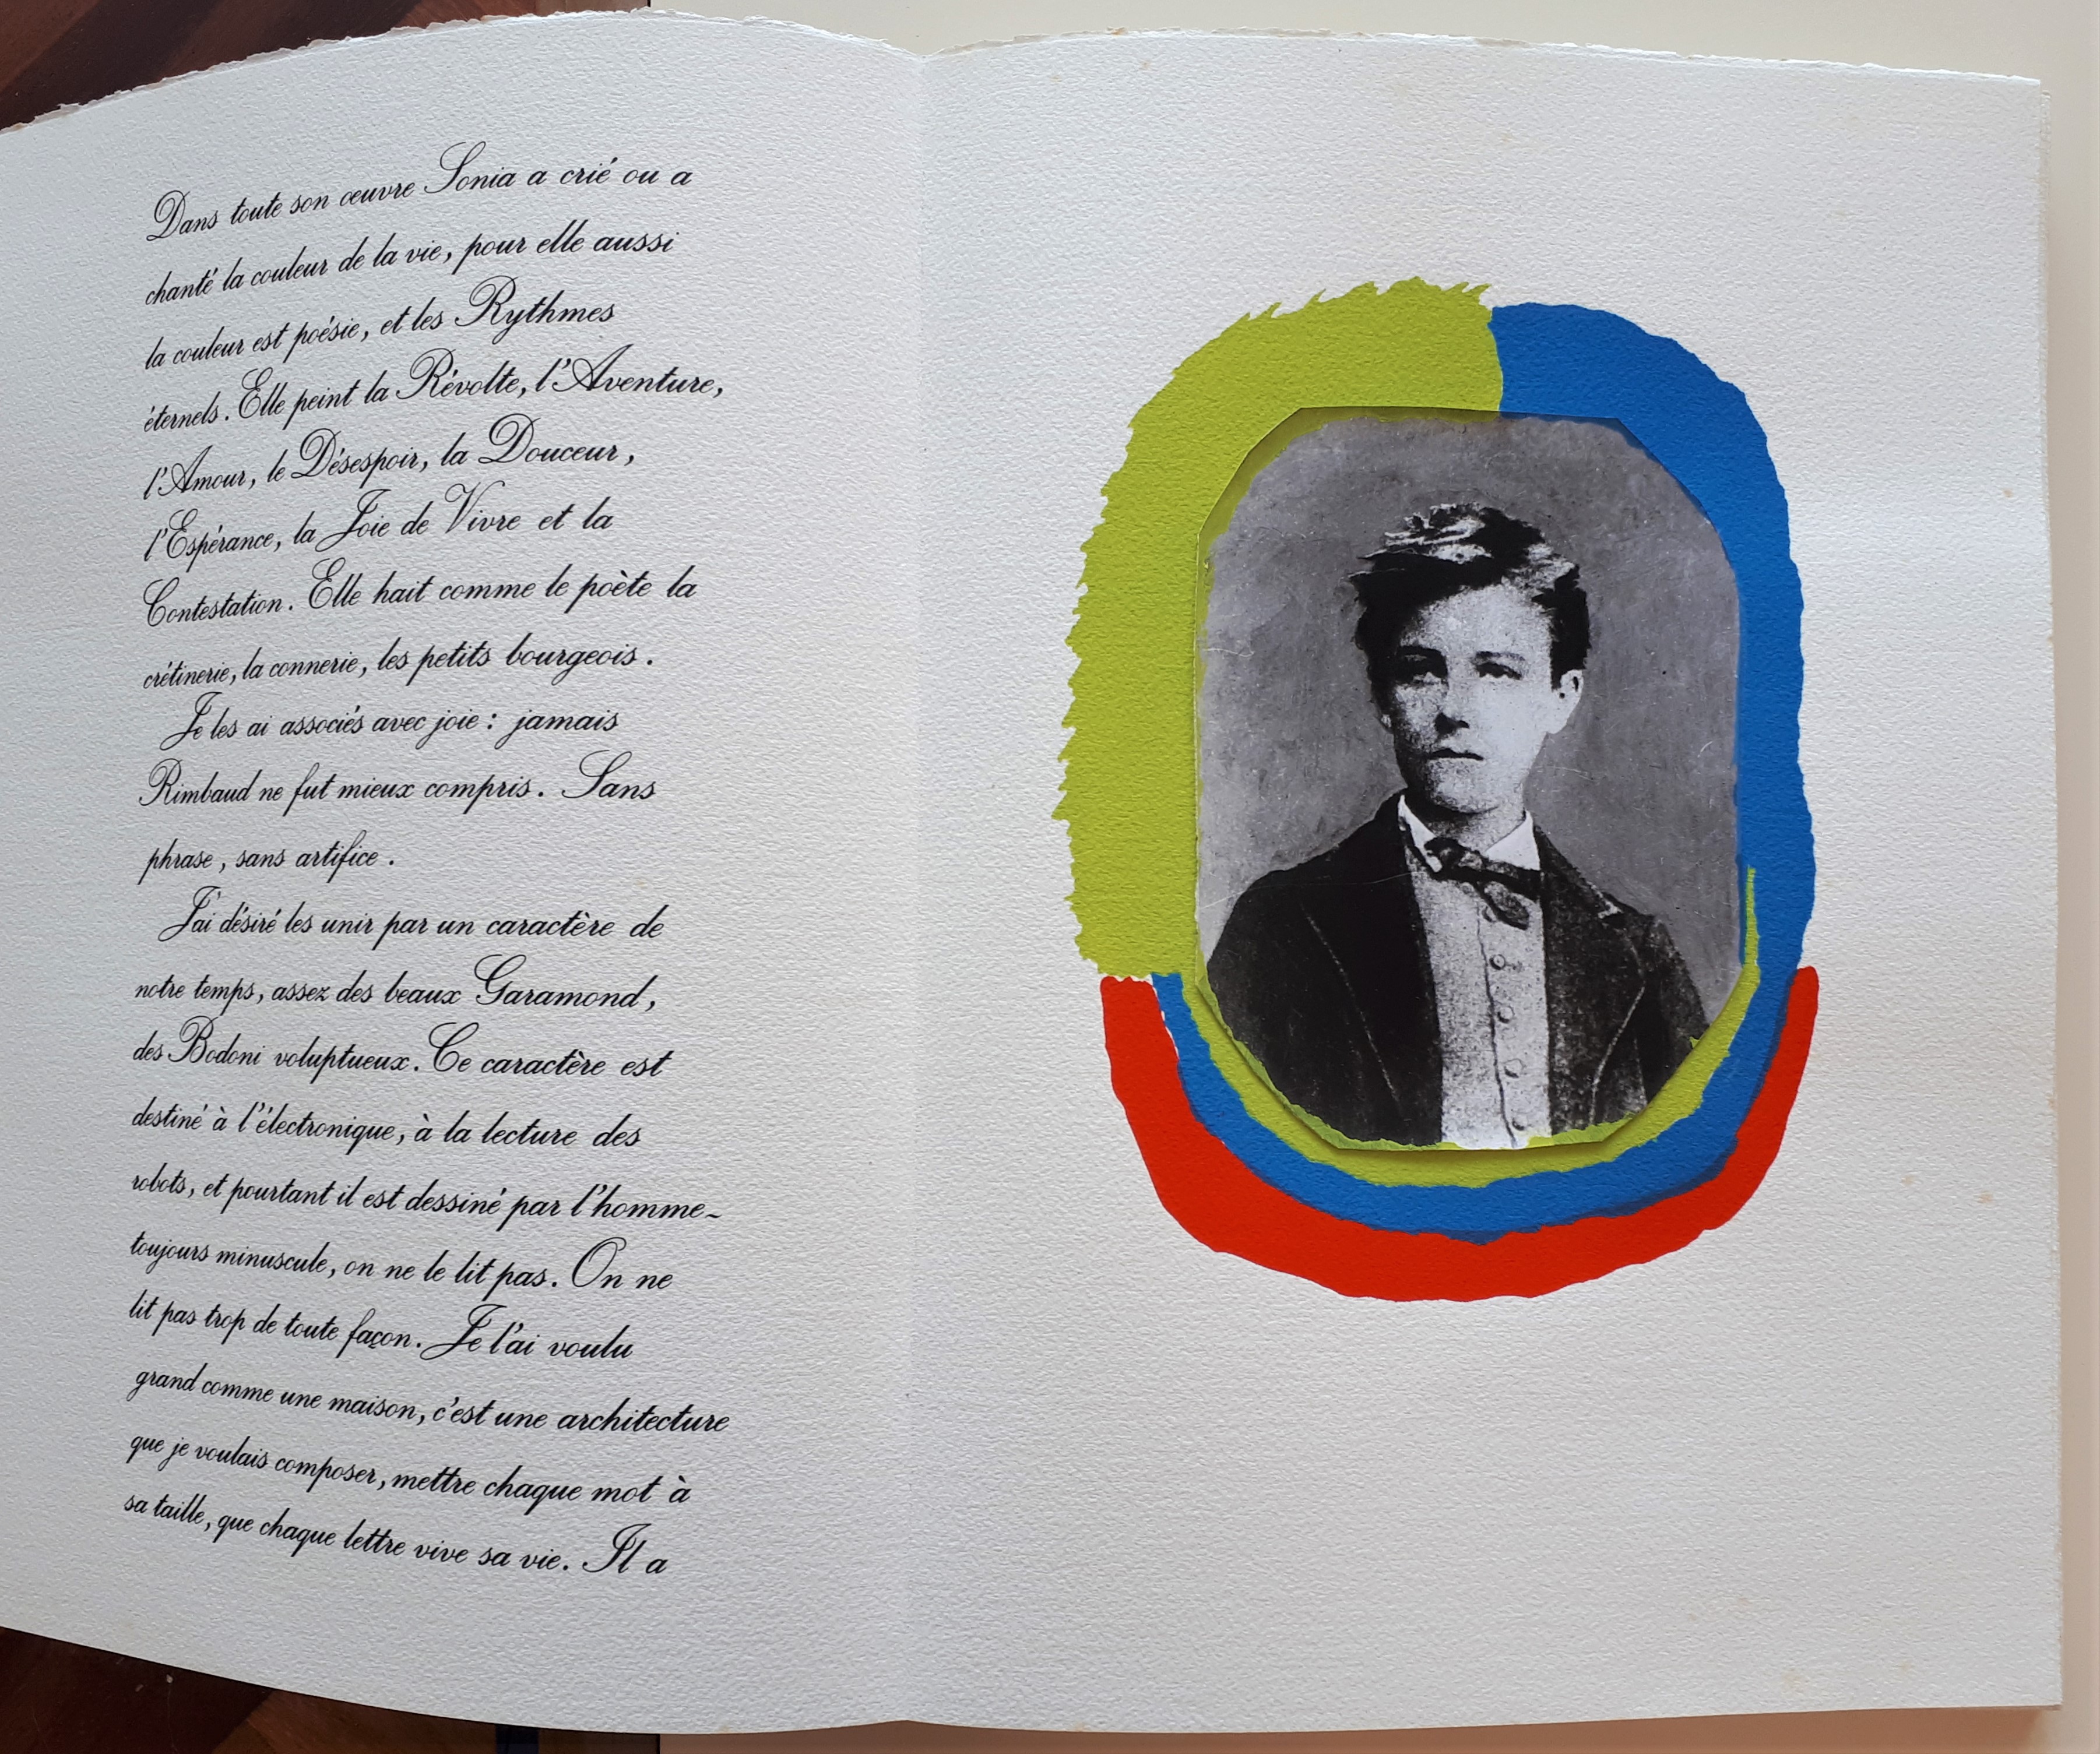 Dans toute son œuvre Sonia a crié ou a
chanté la couleur de la vie, pour elle aussi
la couleur est poésie, et les Rythmes
éternels. Elle peint la Révolte, l'Aventure,
l'Amour, le Désespoir, la Douceur,
l'Espérance, la Joie de Vivre et la
Contestation. Elle hait comme le poète la
crétinerie, la connerie, les petits bourgeois.
Je les ai associés avec joie : jamais
Rimbaud ne fut mieux compris. Sans
phrase, sans artifice.
J'ai désiré les unir par un caractère de
notre temps, assez des beaux Garamond,
des Bodoni voluptueux. Ce caractère est
destiné à l'électronique, à la lecture des
robots, et pourtant il est dessiné par l'homme-
toujours minuscule, on ne le lit pas. On ne
lit pas trop de toute façon. Je l'ai voulu
grand comme une maison, c'est une architecture
que je voulais composer, mettre chaque mot à
sa taille, que chaque lettre vive sa vie. Il a